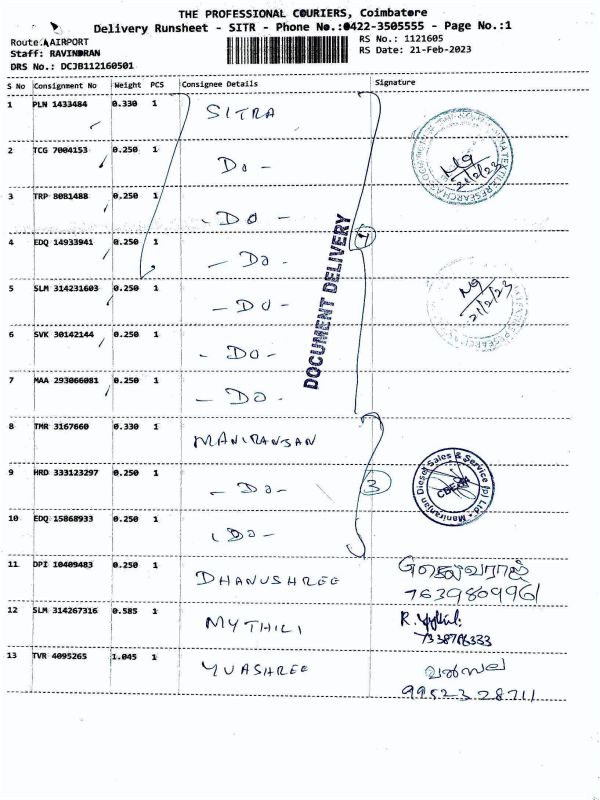 THE PROFESSIONAL COURIERS, Coimbatore
Delivery Runsheet - SITR - Phone No.:0422-3505555 - Page No.:1
Route: AIRPORT
RS No.: 1121605
Staff: RAVINDRAN
RS Date: 21-Feb-2023
DRS No.: DCJB112160501
S No Consignment No Weight PCS Consignee Details Signature
1 PLN 1433484 0.330 1 SITRA
2 TCG 7004153 0.250 1 Do -
21/2/23
3 TRP 8081488 0.250 1 - DO -
4 EDQ 14933941 0.250 1 - Do -
DOCUMENT DELIVERY
5 SLM 314231603 0.250 1 - DO -
21/2/23
6 SVK 30142144 0.250 1 - DO -
7 MAA 293066081 0.250 1 - DO -
8 TMR 3167660 0.330 1 MANIRANJAN
9 HRD 333123297 0.250 1 - Do -
3
Maniranjan Diesel Sales & Service (p) Ltd.
10 EDQ 15868933 0.250 1 - Do -
11 DPI 10409483 0.250 1 DHANUSHREE
7639809961
12 SLM 314267316 0.585 1 MYTHILI
R.
13 TVR 4095265 1.045 1 YUASHREE
வள்சல